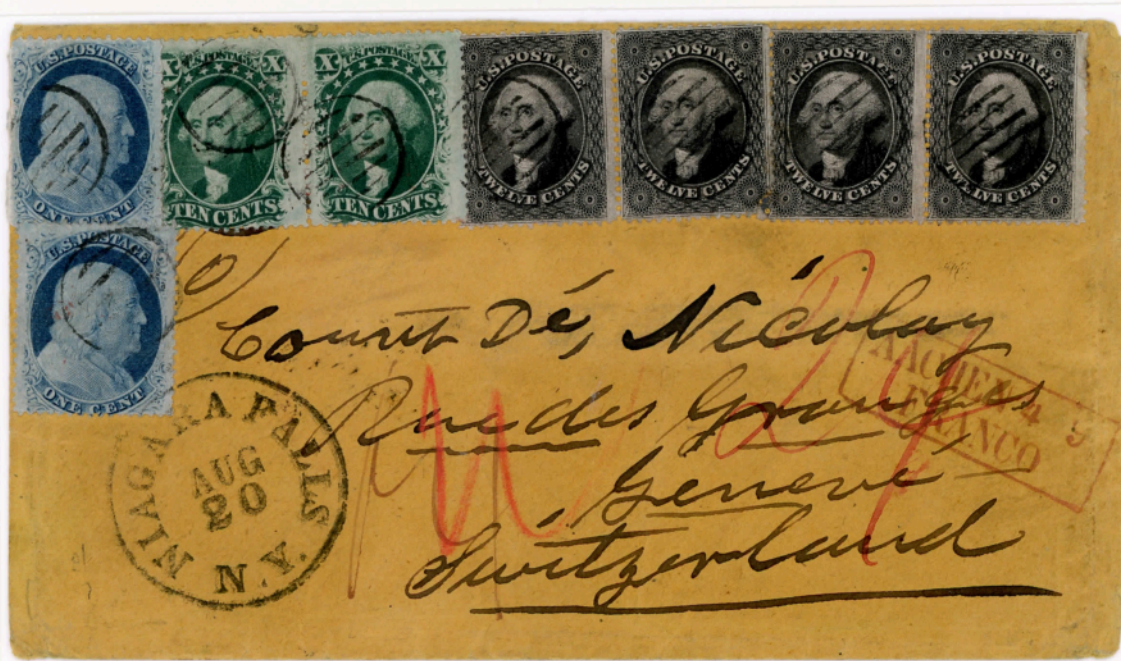 U.S. POSTAGE
ONE CENT
X U.S. POSTAGE X
TEN CENTS
X U.S. POSTAGE X
TEN CENTS
U.S. POSTAGE
TWELVE CENTS
U.S. POSTAGE
TWELVE CENTS
U.S. POSTAGE
TWELVE CENTS
U.S. POSTAGE
TWELVE CENTS
U.S. POSTAGE
ONE CENT
Count Dé, Nicolay
Rue des Granges
Genevé
Switzerland
AACHEN 4 9
FRANCO
NIAGARA FALLS
AUG
20
N.Y.